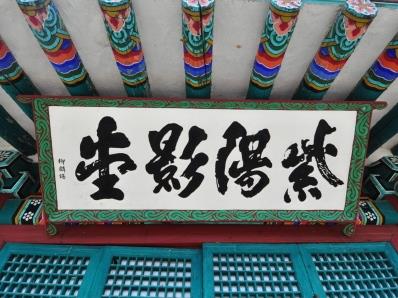 紫陽影堂